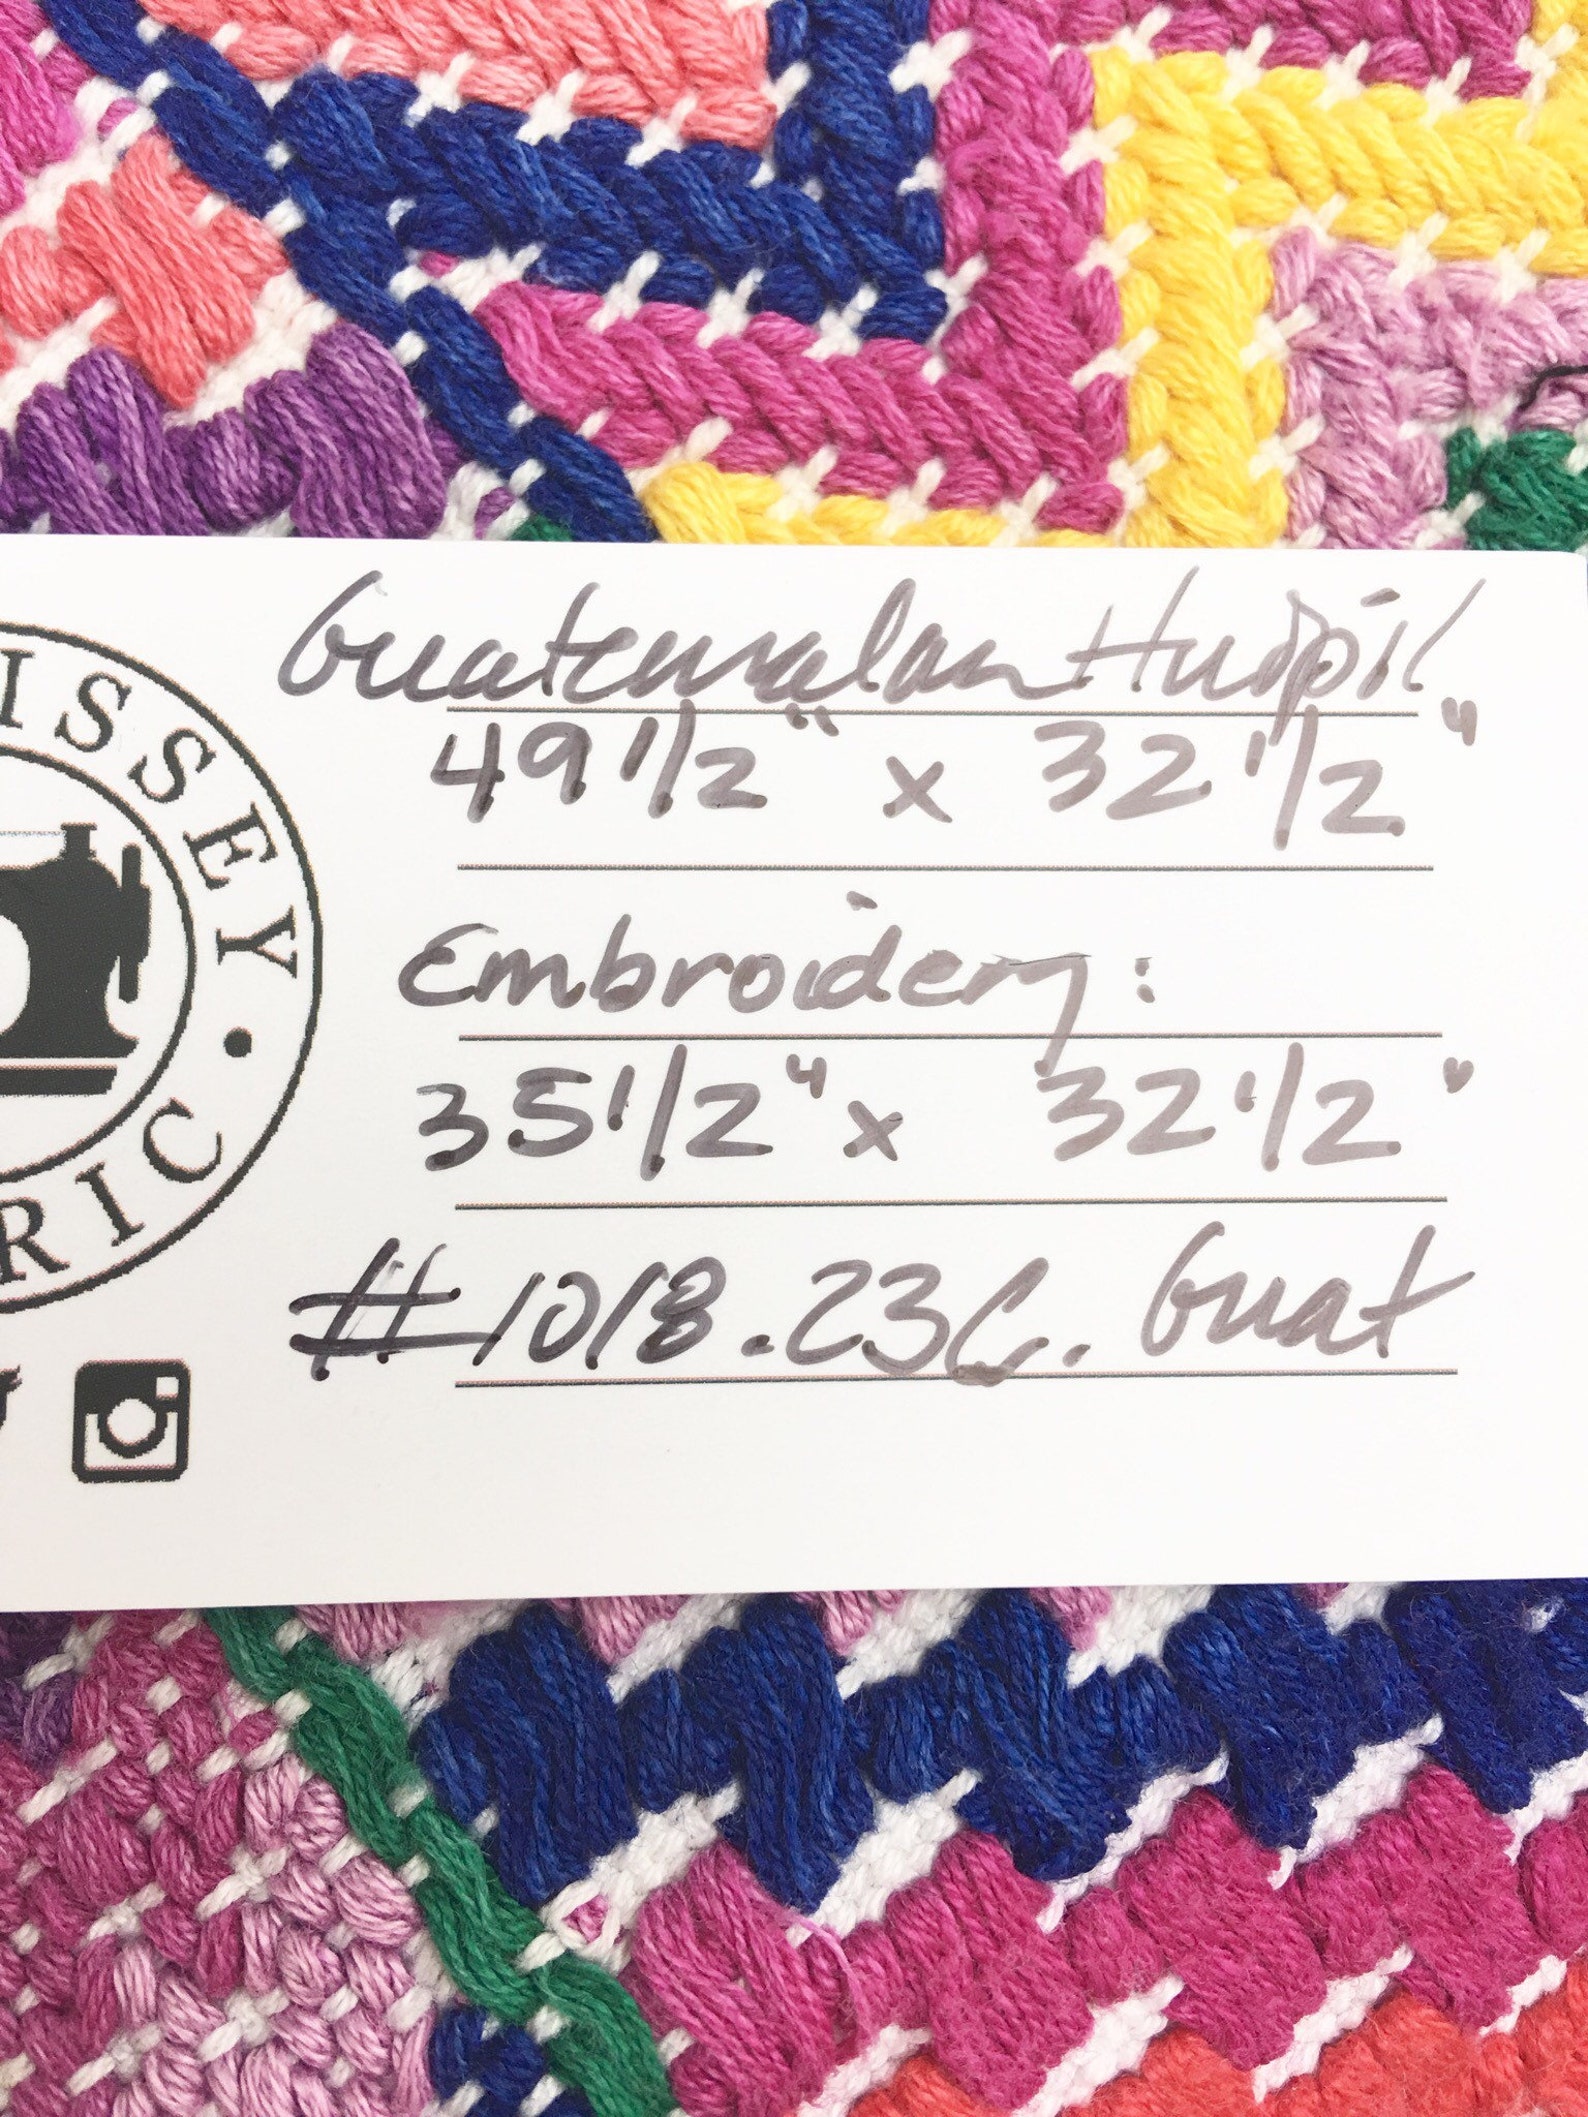 ISSEY • RIC
Guatemalan Huipil
49 1/2" x 32 1/2"
Embroidery:
35 1/2" x 32 1/2"
#1018.23C. Guat